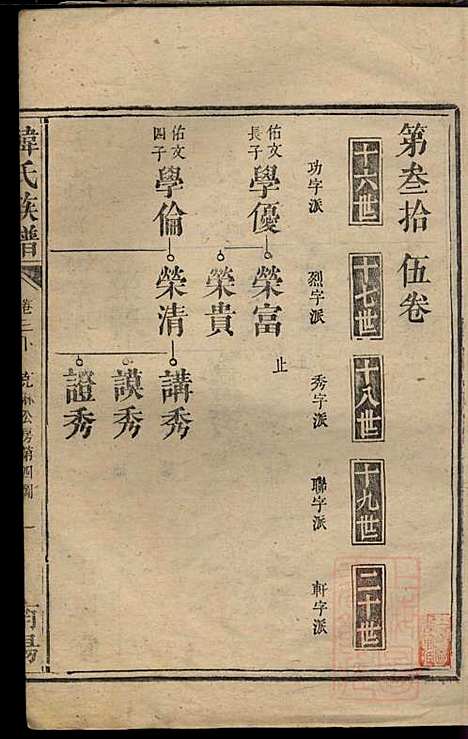 第叁拾伍卷
十六世
十七世
十八世
十九世
二十世
功字派
烈字派
秀字派
聯字派
軒字派
佑文長子
學優
榮富
止
榮貴
佑文四子
學倫
榮清
講秀
謨秀
證秀
韓氏族譜
卷三十
公房第四